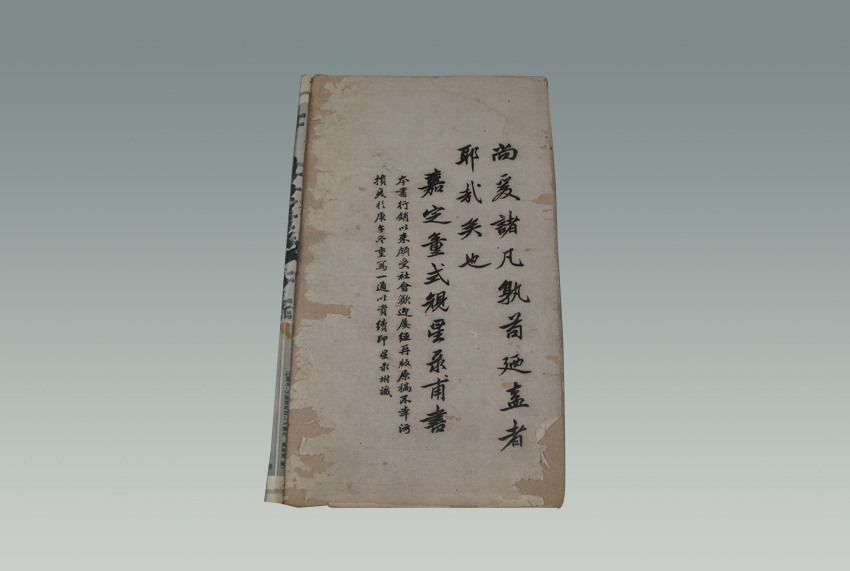 尚爰諸凡孰苟廼盍者
耶哉矣也
嘉定童式規星彔甫書
本書行銷以來頗受社會歡迎屢經再版原稿不幸污
損爰於庚午冬重寫一通以資續印星彔坿識